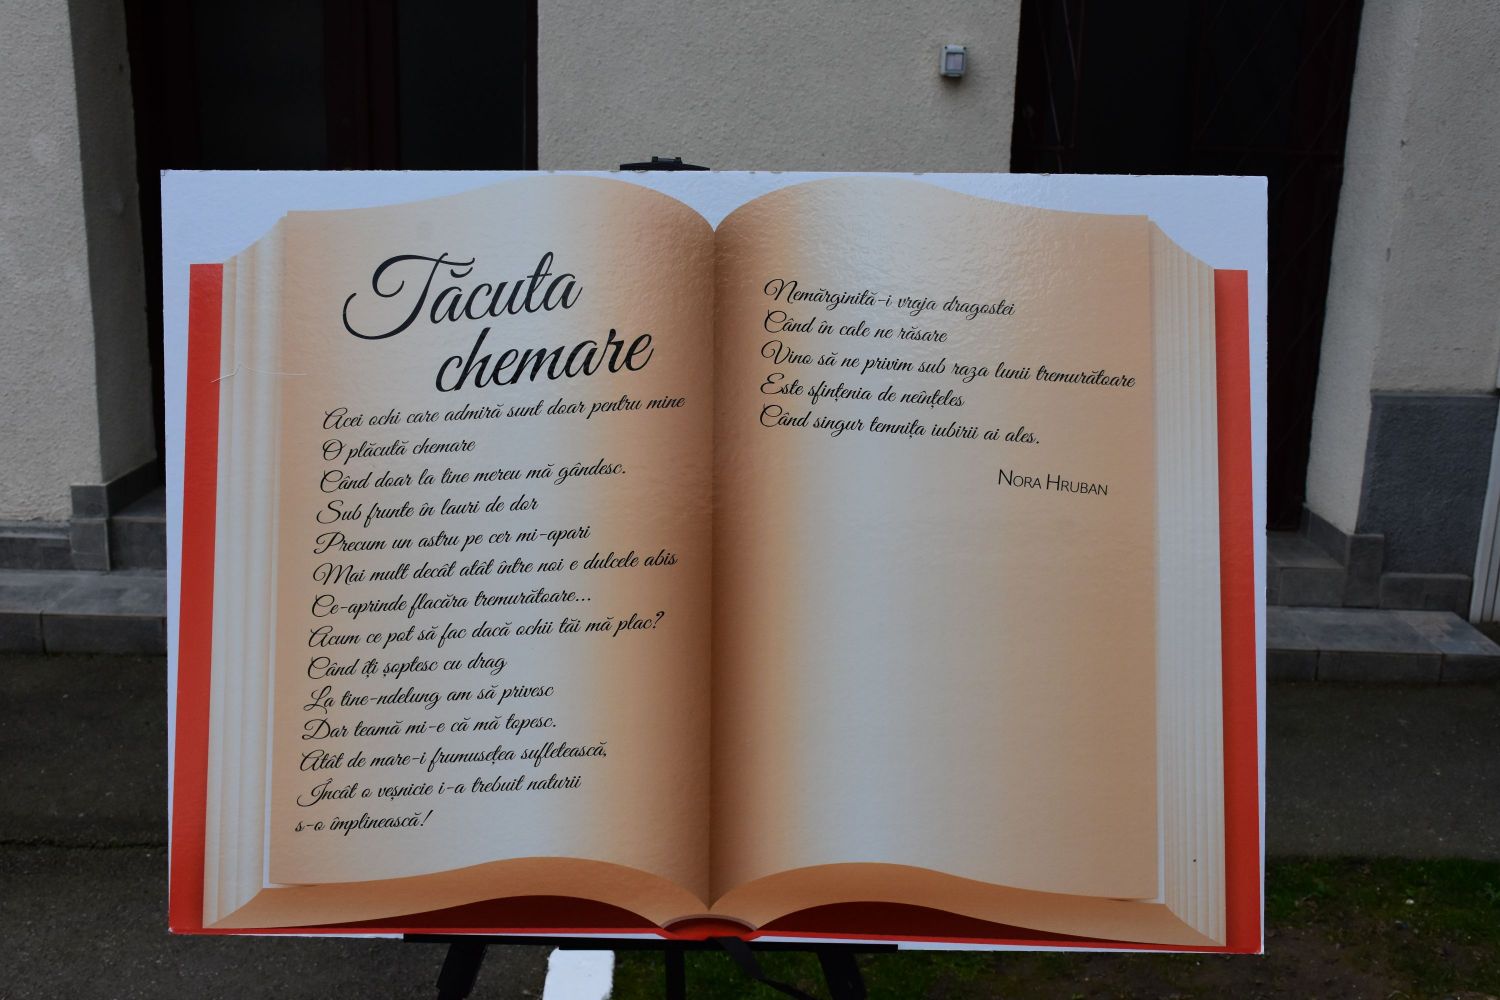 Tăcuta
chemare
Acei ochi care admiră sunt doar pentru mine
O plăcută chemare
Când doar la tine mereu mă gândesc.
Sub frunte în lauri de dor
Precum un astru pe cer mi-apari
Mai mult decât atât între noi e dulcele abis
Ce-aprinde flacăra tremurătoare...
Acum ce pot să fac dacă ochii tăi mă plac?
Când îți șoptesc cu drag
La tine-ndelung am să privesc
Dar teamă mi-e că mă topesc.
Atât de mare-i frumusețea sufletească,
Încât o veșnicie i-a trebuit naturii
s-o împlinească!
Nemărginită-i vraja dragostei
Când în cale ne răsare
Vino să ne privim sub raza lunii tremurătoare
Este sfințenia de neînțeles
Când singur temnița iubirii ai ales.
Nora Hruban